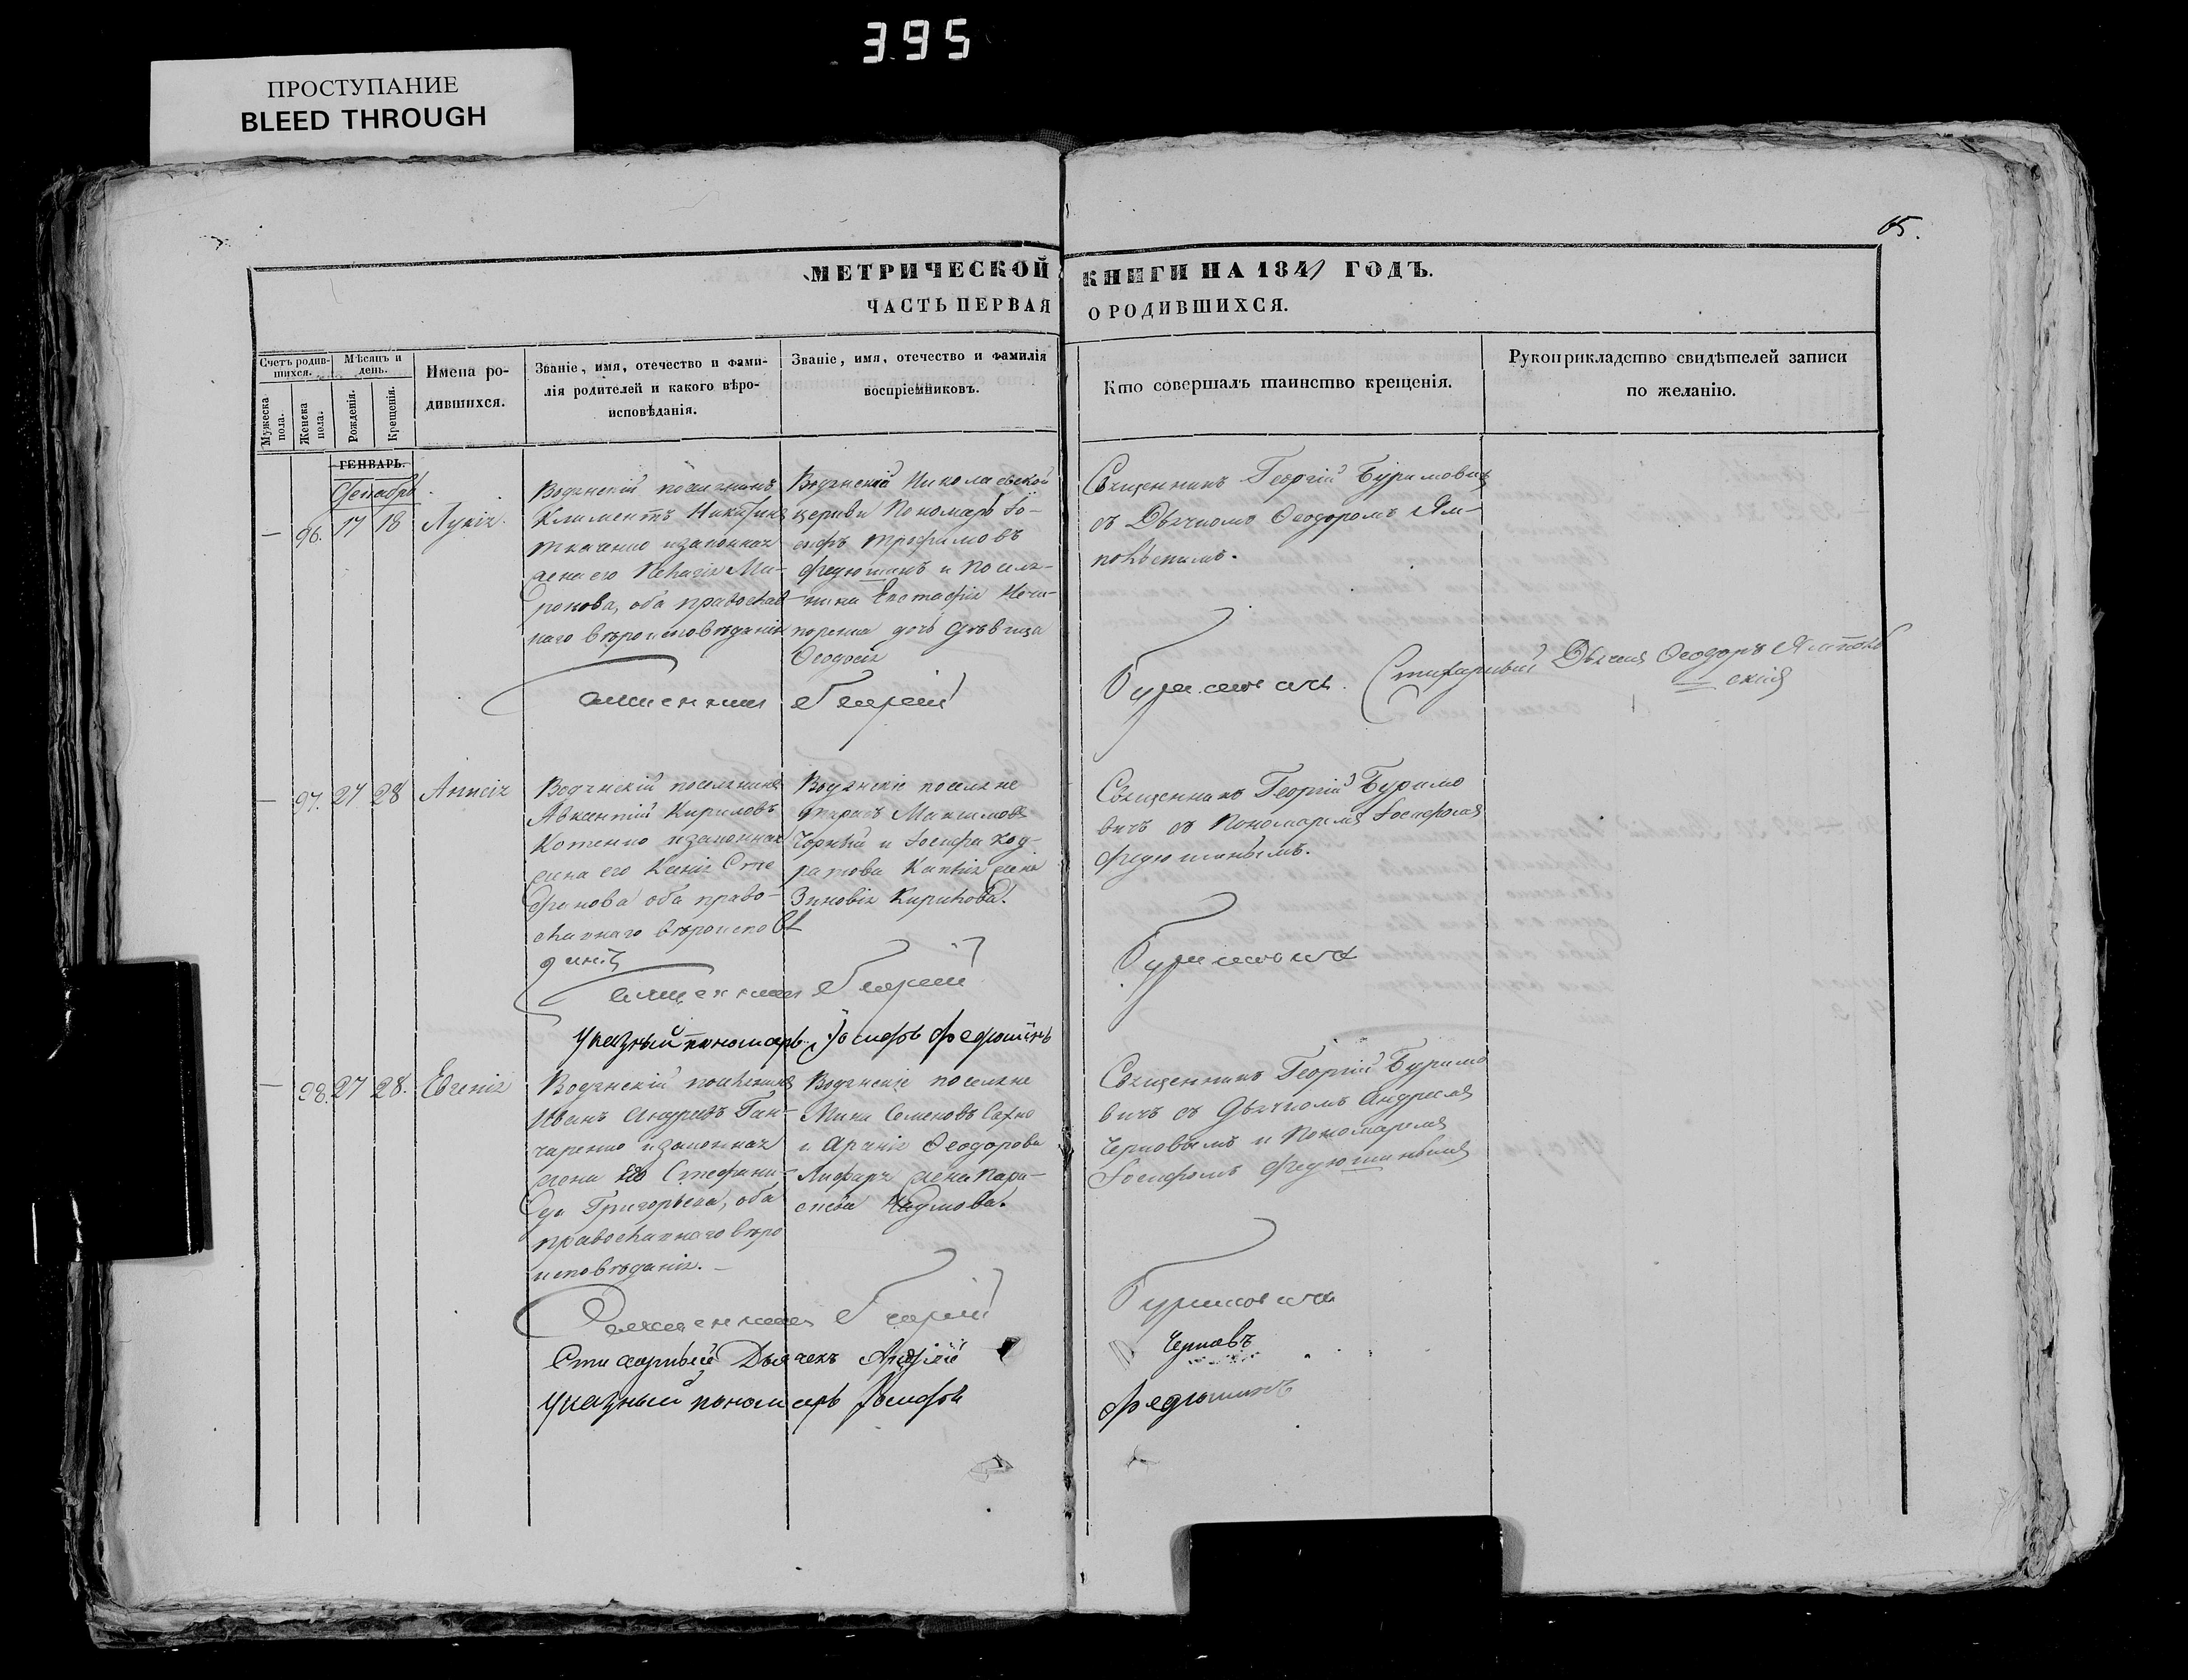 395
ПРОСТУПАНИЕ
BLEED THROUGH
65.
МЕТРИЧЕСКОЙ КНИГИ НА 1847 ГОДЪ.
ЧАСТЬ ПЕРВАЯ О РОДИВШИХСЯ.
Счетъ родив-
шихся.
Мужеска
пола.
Женска
пола.
Мѣсяцъ и
день.
Рожденія.
Крещенія.
Имена ро-
дившихся.
Званіе, имя, отечество и фами-
лія родителей и какого вѣро-
исповѣданія.
Званіе, имя, отечество и фамилія
воспріемниковъ.
Кто совершалъ таинство крещенія.
Рукоприкладство свидѣтелей записи
по желанію.
ГЕНВАРЬ.
Декабрь
— 96. 17 18 Лукія.
Водянскій поселянинъ
Климентъ Никитинъ
Ткаченко и законная
жена его Пелагія Ми-
ронова, оба православ-
наго вѣроисповѣданія
Водянской Николаевской
церкви Пономарь Іо-
сифъ Трофимовъ
Федюшинъ и поселя-
нина Евстафія Нечи-
поренка дочь дѣвица
Ѳеодосія
Священникъ Георгій Буримовичъ
съ Дьячкомъ Ѳеодоромъ Ям-
польскимъ.
Священникъ Георгій Буримовичъ. Стихарный Дьячекъ Ѳеодоръ Ямполь
скій
— 97. 27 28 Анисія
Водянскій поселянинъ
Авксентій Кириловъ
Котенко и законная
жена его Ксенія Сте
фанова оба право-
славнаго вѣроисповѣ
данія
Водянскіе поселяне
Максимовъ
Чорный и Іосифа Код
ратова жена
Зиновія Кирилова.
Священникъ Георгій Буримо
вичъ съ Пономаремъ Іосифомъ
Федюшинымъ.
Священникъ Георгій Буримовичъ
Указный пономарь Іосифъ Федюшинъ
— 98. 27 28. Евгенія
Водянскій поселянинъ
Иванъ Андреевъ Ган-
чаренко и законная
жена его Стефани-
да Григорьева, оба
православнаго вѣро
исповѣданія.
Водянскіе поселяне
Мина Семеновъ Сахно
и Ѳеодорова
жена Пара-
скева Наумова.
Священникъ Георгій Буримо
вичъ съ Дьячкомъ Андреемъ
Черновымъ и Пономаремъ
Іосифомъ Федюшинымъ
Священникъ Георгій Буримовичъ
Стихарный Дьячекъ Андрей Черновъ
Указный пономарь Іосифъ Федюшинъ